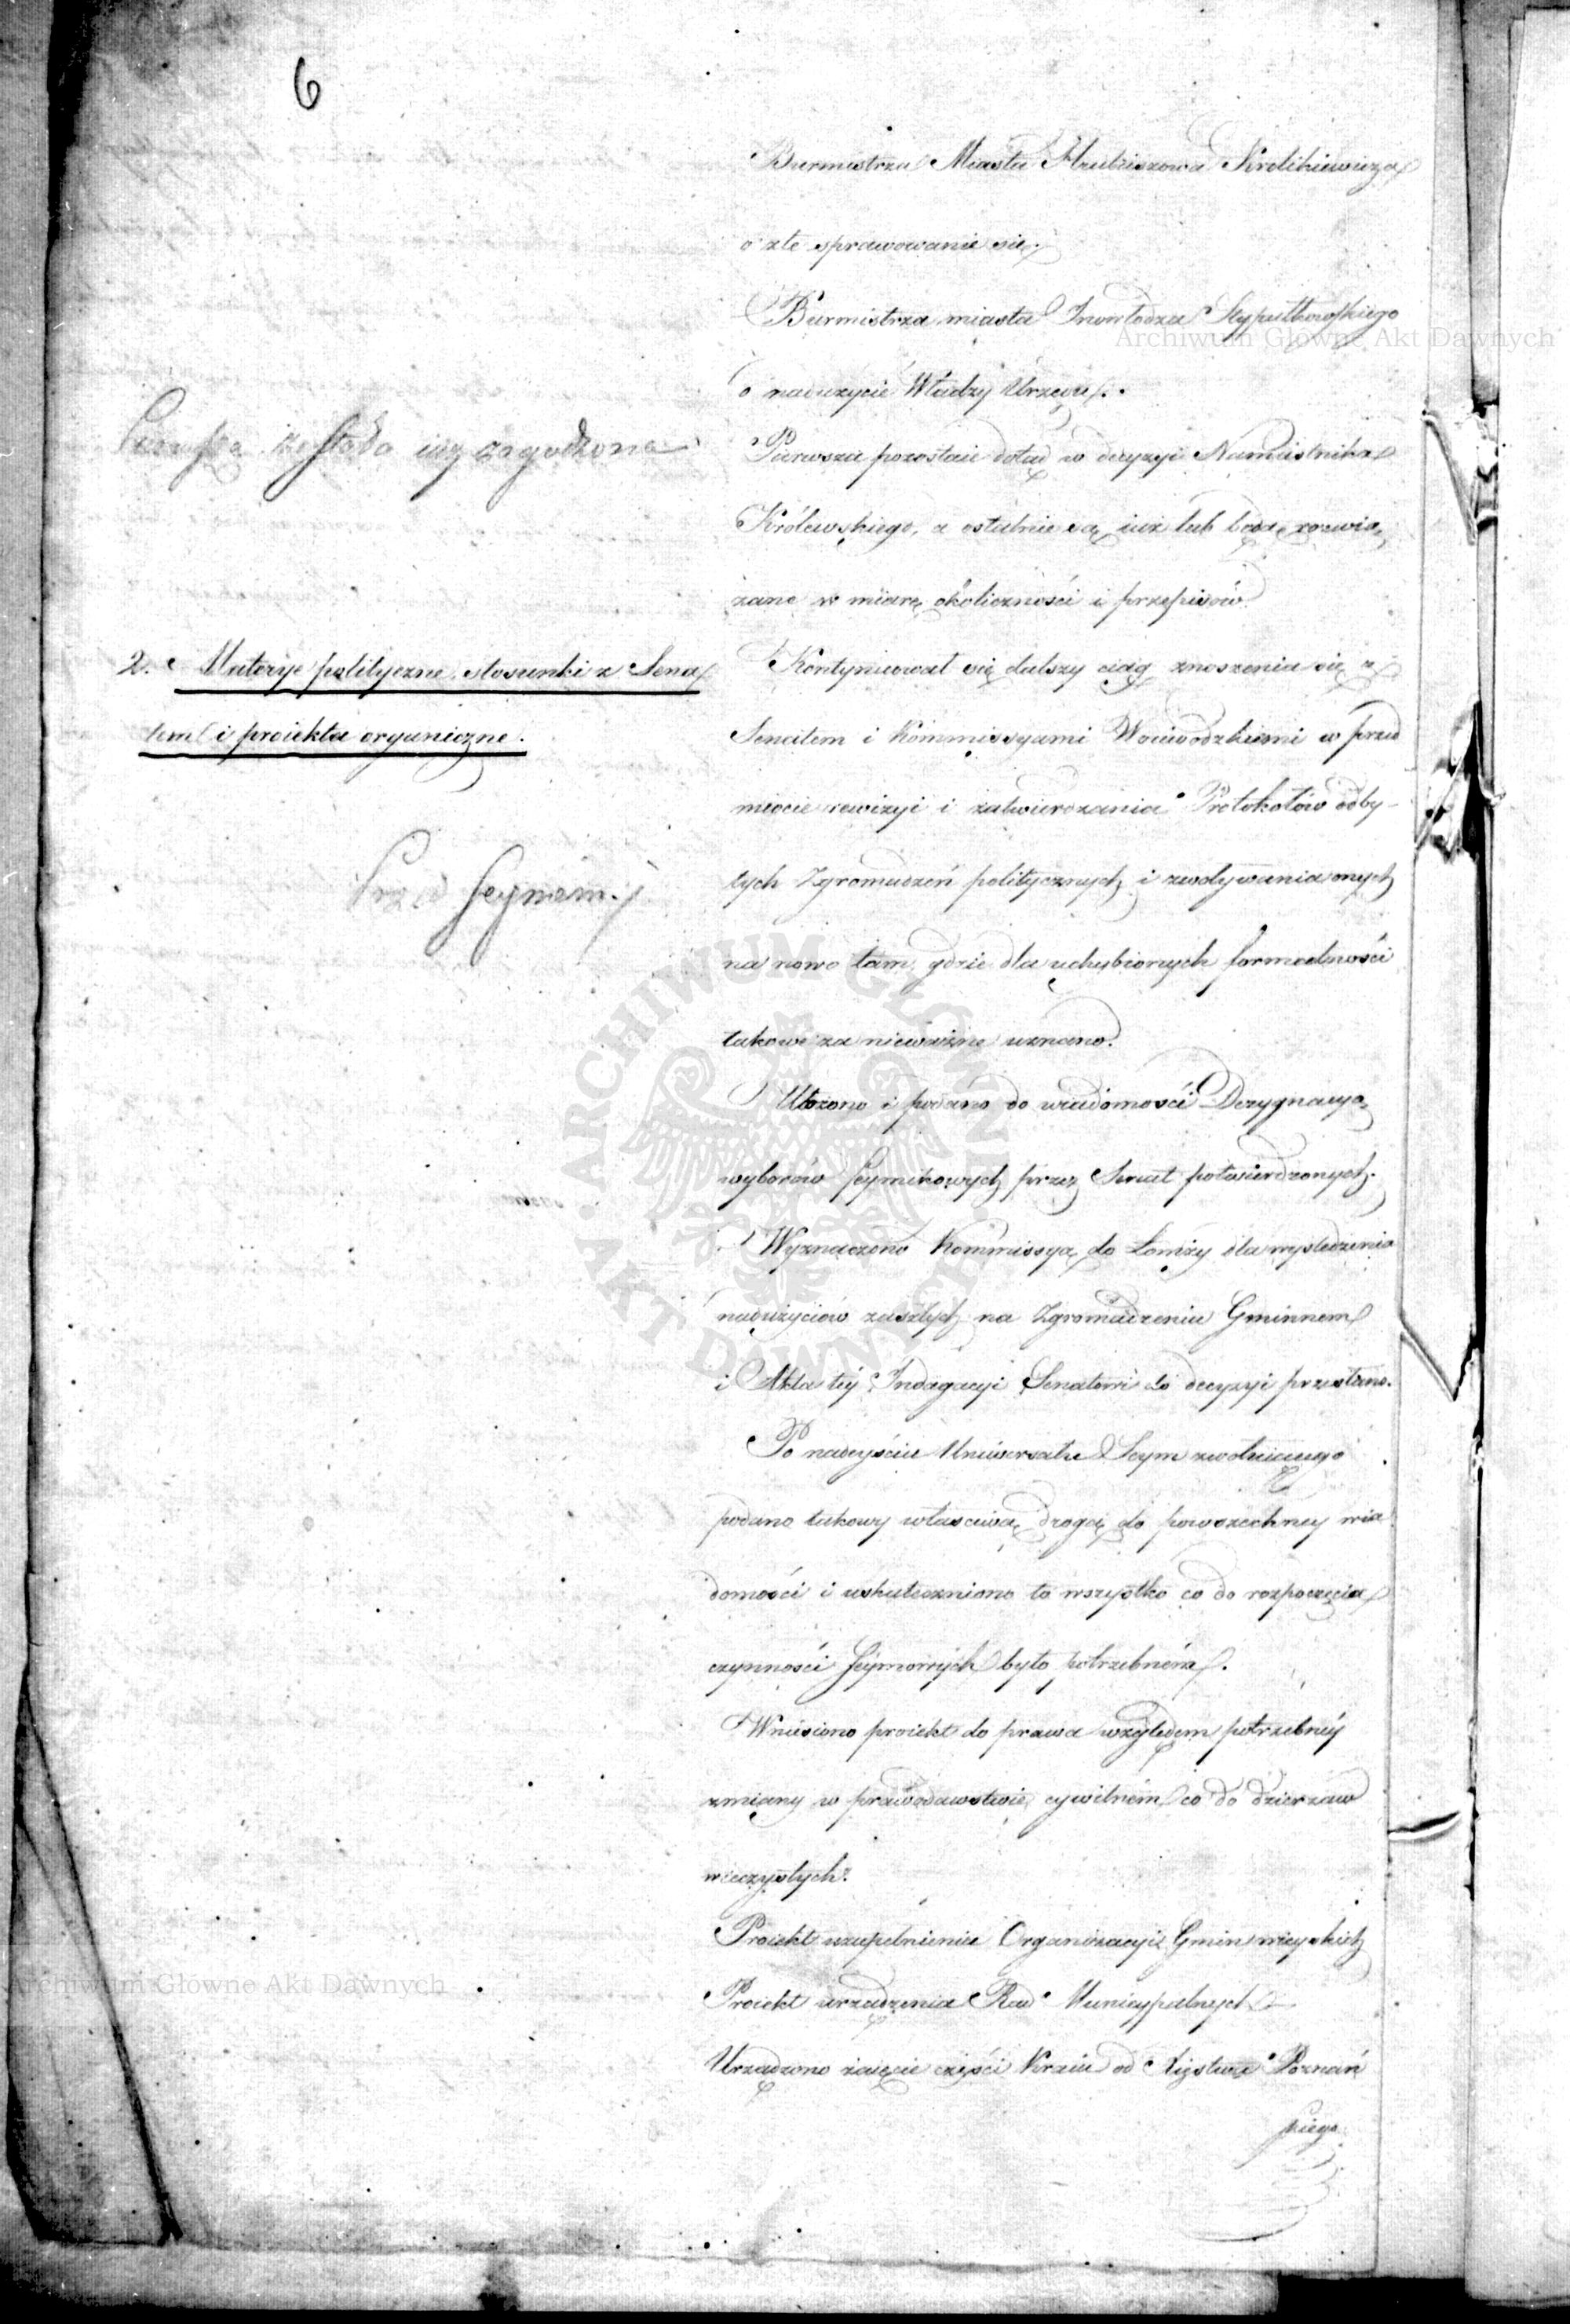 6
Burmistrza Miasta Hrubieszowa Krolikiewicza
o złe sprawowanie się.
Burmistrza miasta Inowłodza Stypułkowskiego
o nadużycie Władzy Urzędu.
Pierwsza została iuż zagodzona
Pierwsza pozostaie dotąd w decyzyi Namiestnika
Królewskiego, a ostatnie są iuż lub będą rozwią
zane w miarę okoliczności i przepisów
2. Materye polityczne, stosunki z Sena
tem i proiekta organiczne.
Kontynuował się dalszy ciąg znoszenia się z
Senatem i Kommissyami Woiewodzkiemi w przed
miocie rewizyi i zatwierdzania Protokołów odby-
tych Zgromadzeń politycznych i zwoływania onych
na nowo tam, gdzie dla uchybionych formalności
takowe za nieważne uznano.
Przed Seymem.
Ułożono i podano do wiadomości Dezygnacyą
wyborów Seymikowych przez Senat potwierdzonych.
Wyznaczono Kommissyą do Łomży dla wyśledzenia
nadużyciów zaszłych na Zgromadzeniu Gminnem
i Akta téy Indagacyi Senatowi do decyzyi przesłano.
Po nadeyściu Uniwersału Seym zwołuiącego
podano takowy właściwą drogą do powszechney wia
domości i uskuteczniono to wszystko co do rozpoczęcia
czynności Seymowych było potrzebném.
Wniesiono proiekt do prawa względem potrzebnéy
zmiany w prawodawstwie cywilném co do dzierżaw
wieczystych.
Proiekt uzupełnienia Organizacyi Gmin wieyskich
Proiekt urządzenia Rad Municypalnych
Urządzono zaięcie części Kraiu od Xięstwa Poznań
skiego
Archiwum Główne Akt Dawnych
Archiwum Główne Akt Dawnych
ARCHIWUM GŁÓWNE AKT DAWNYCH